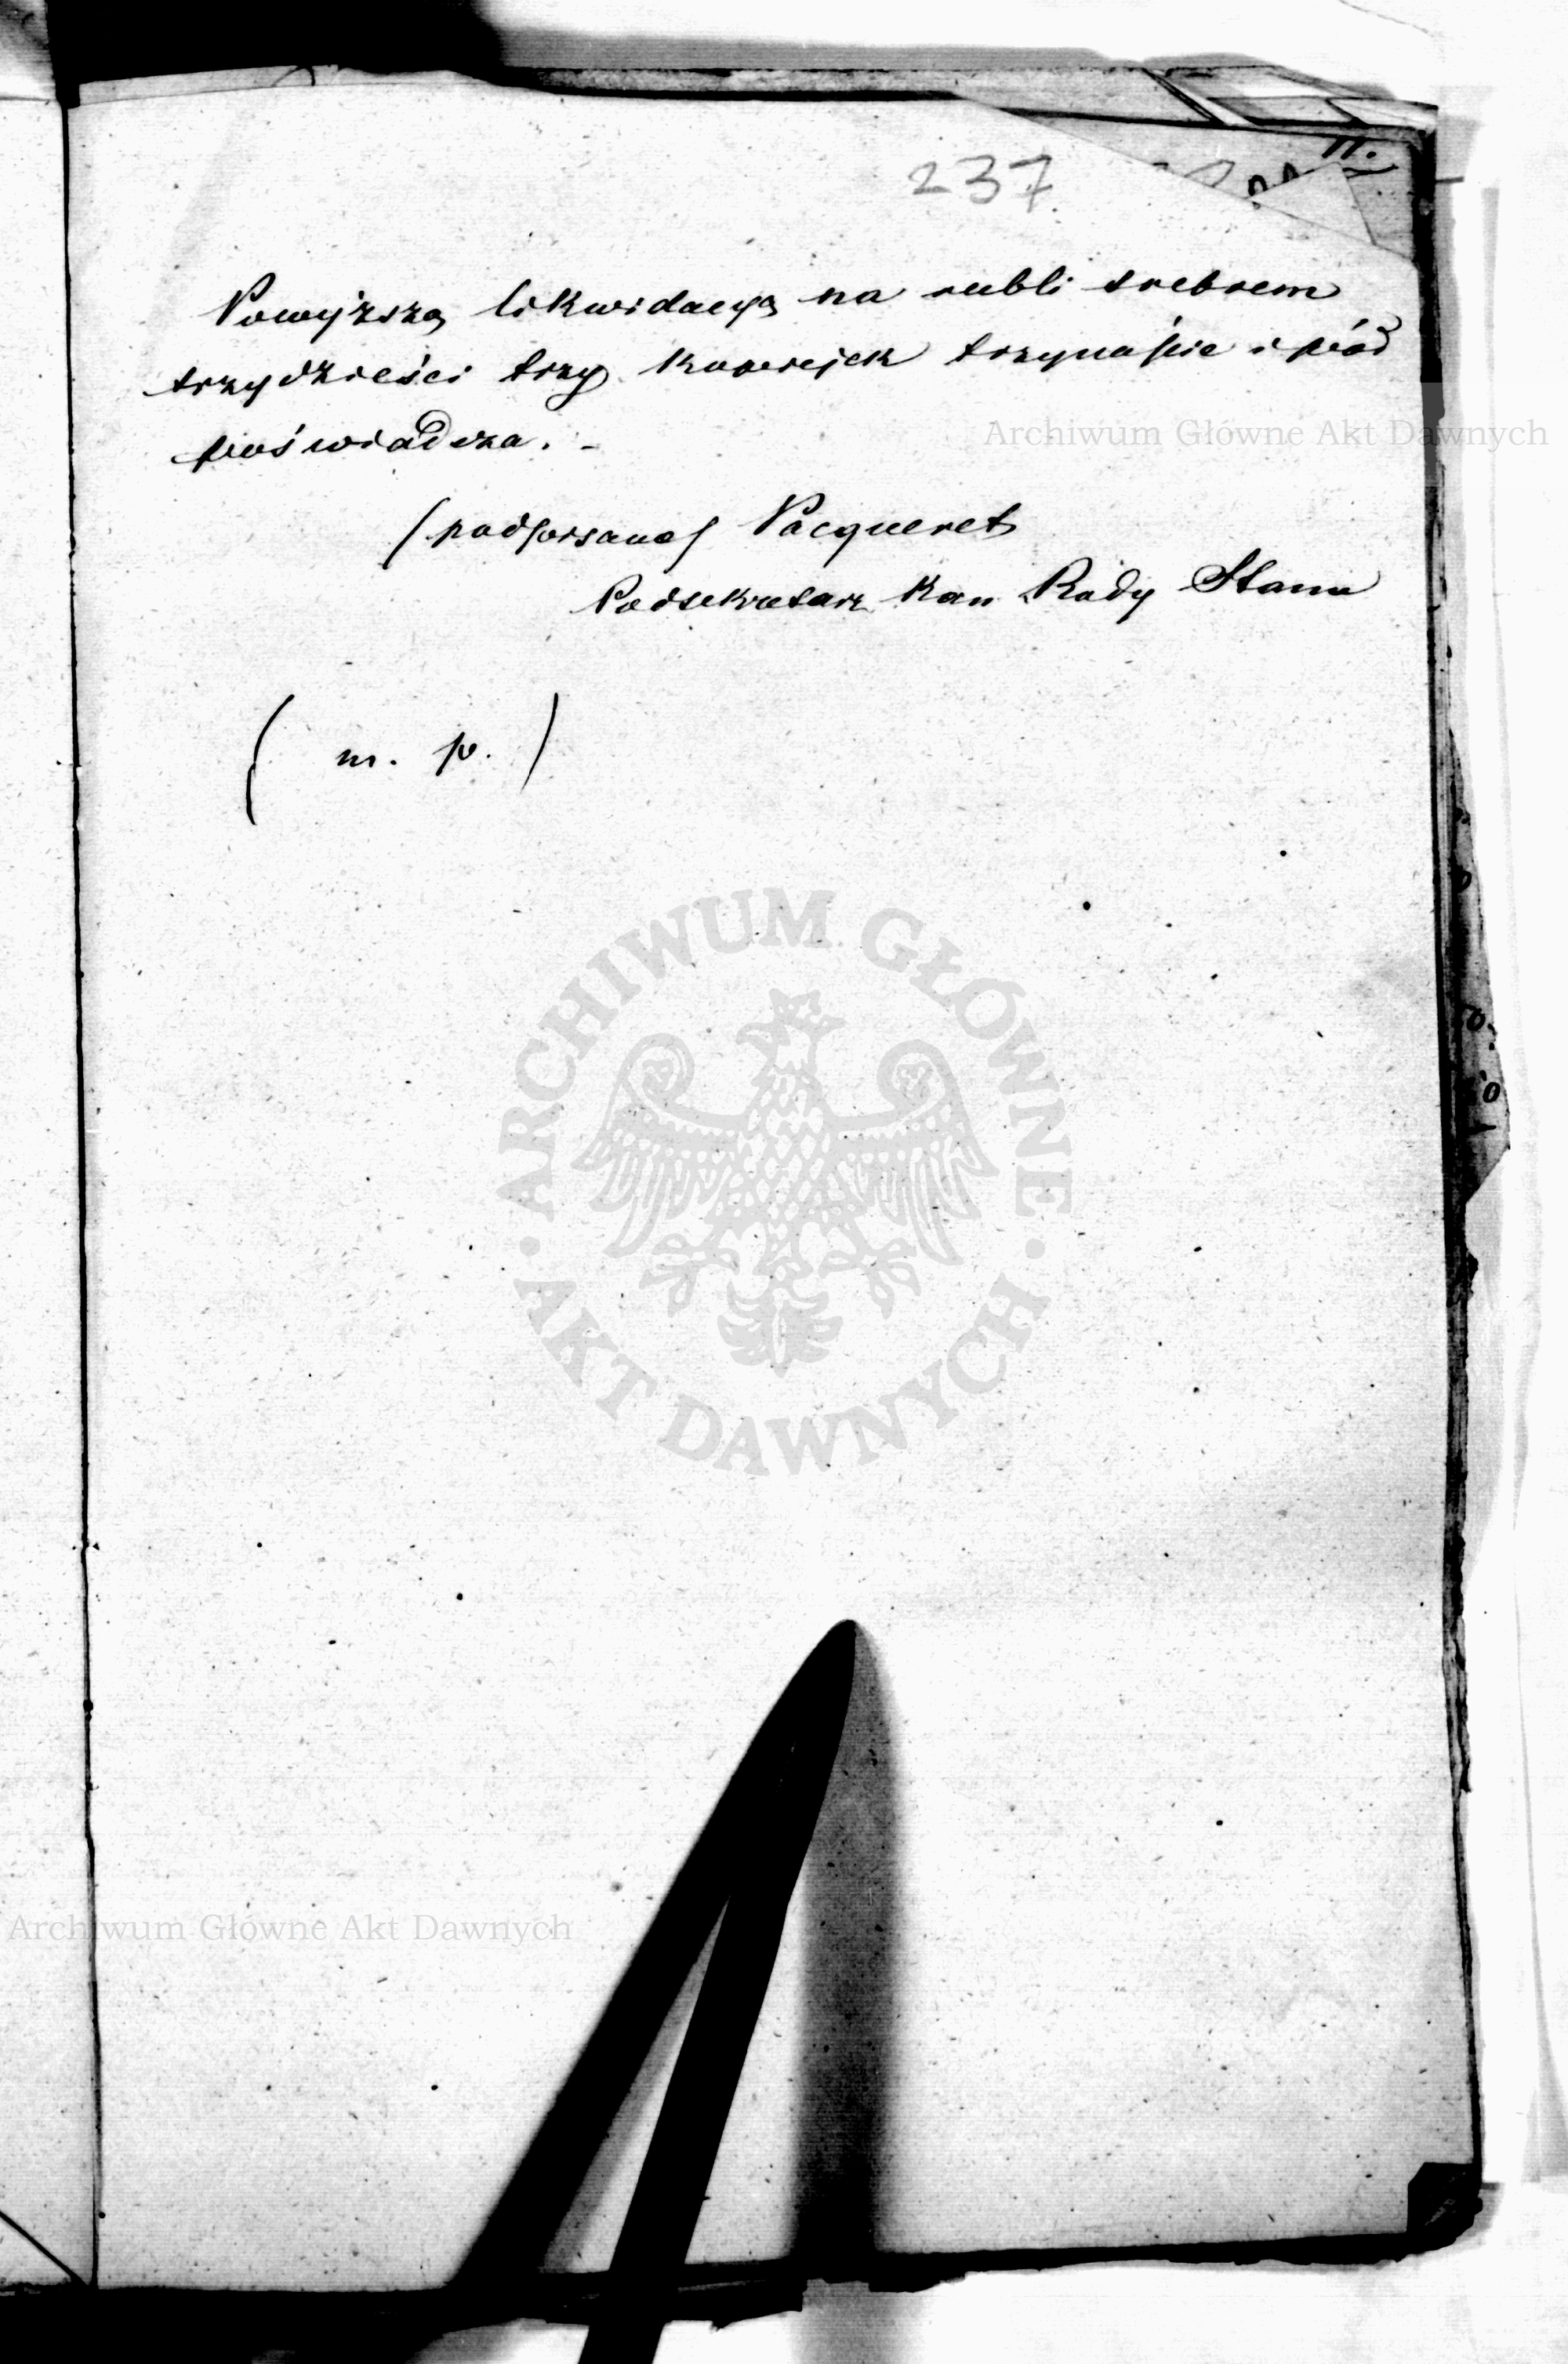 237
Powyższą likwidacyą na rubli srebrem
trzydzieści trzy kopiejek trzynaście i pół
poświadcza. -
/podpisano/ Pacqueret
Podsekretarz Kan Rady Stanu
( m. p. )
Archiwum Główne Akt Dawnych
ARCHIWUM GŁÓWNE
· AKT DAWNYCH ·
Archiwum Główne Akt Dawnych